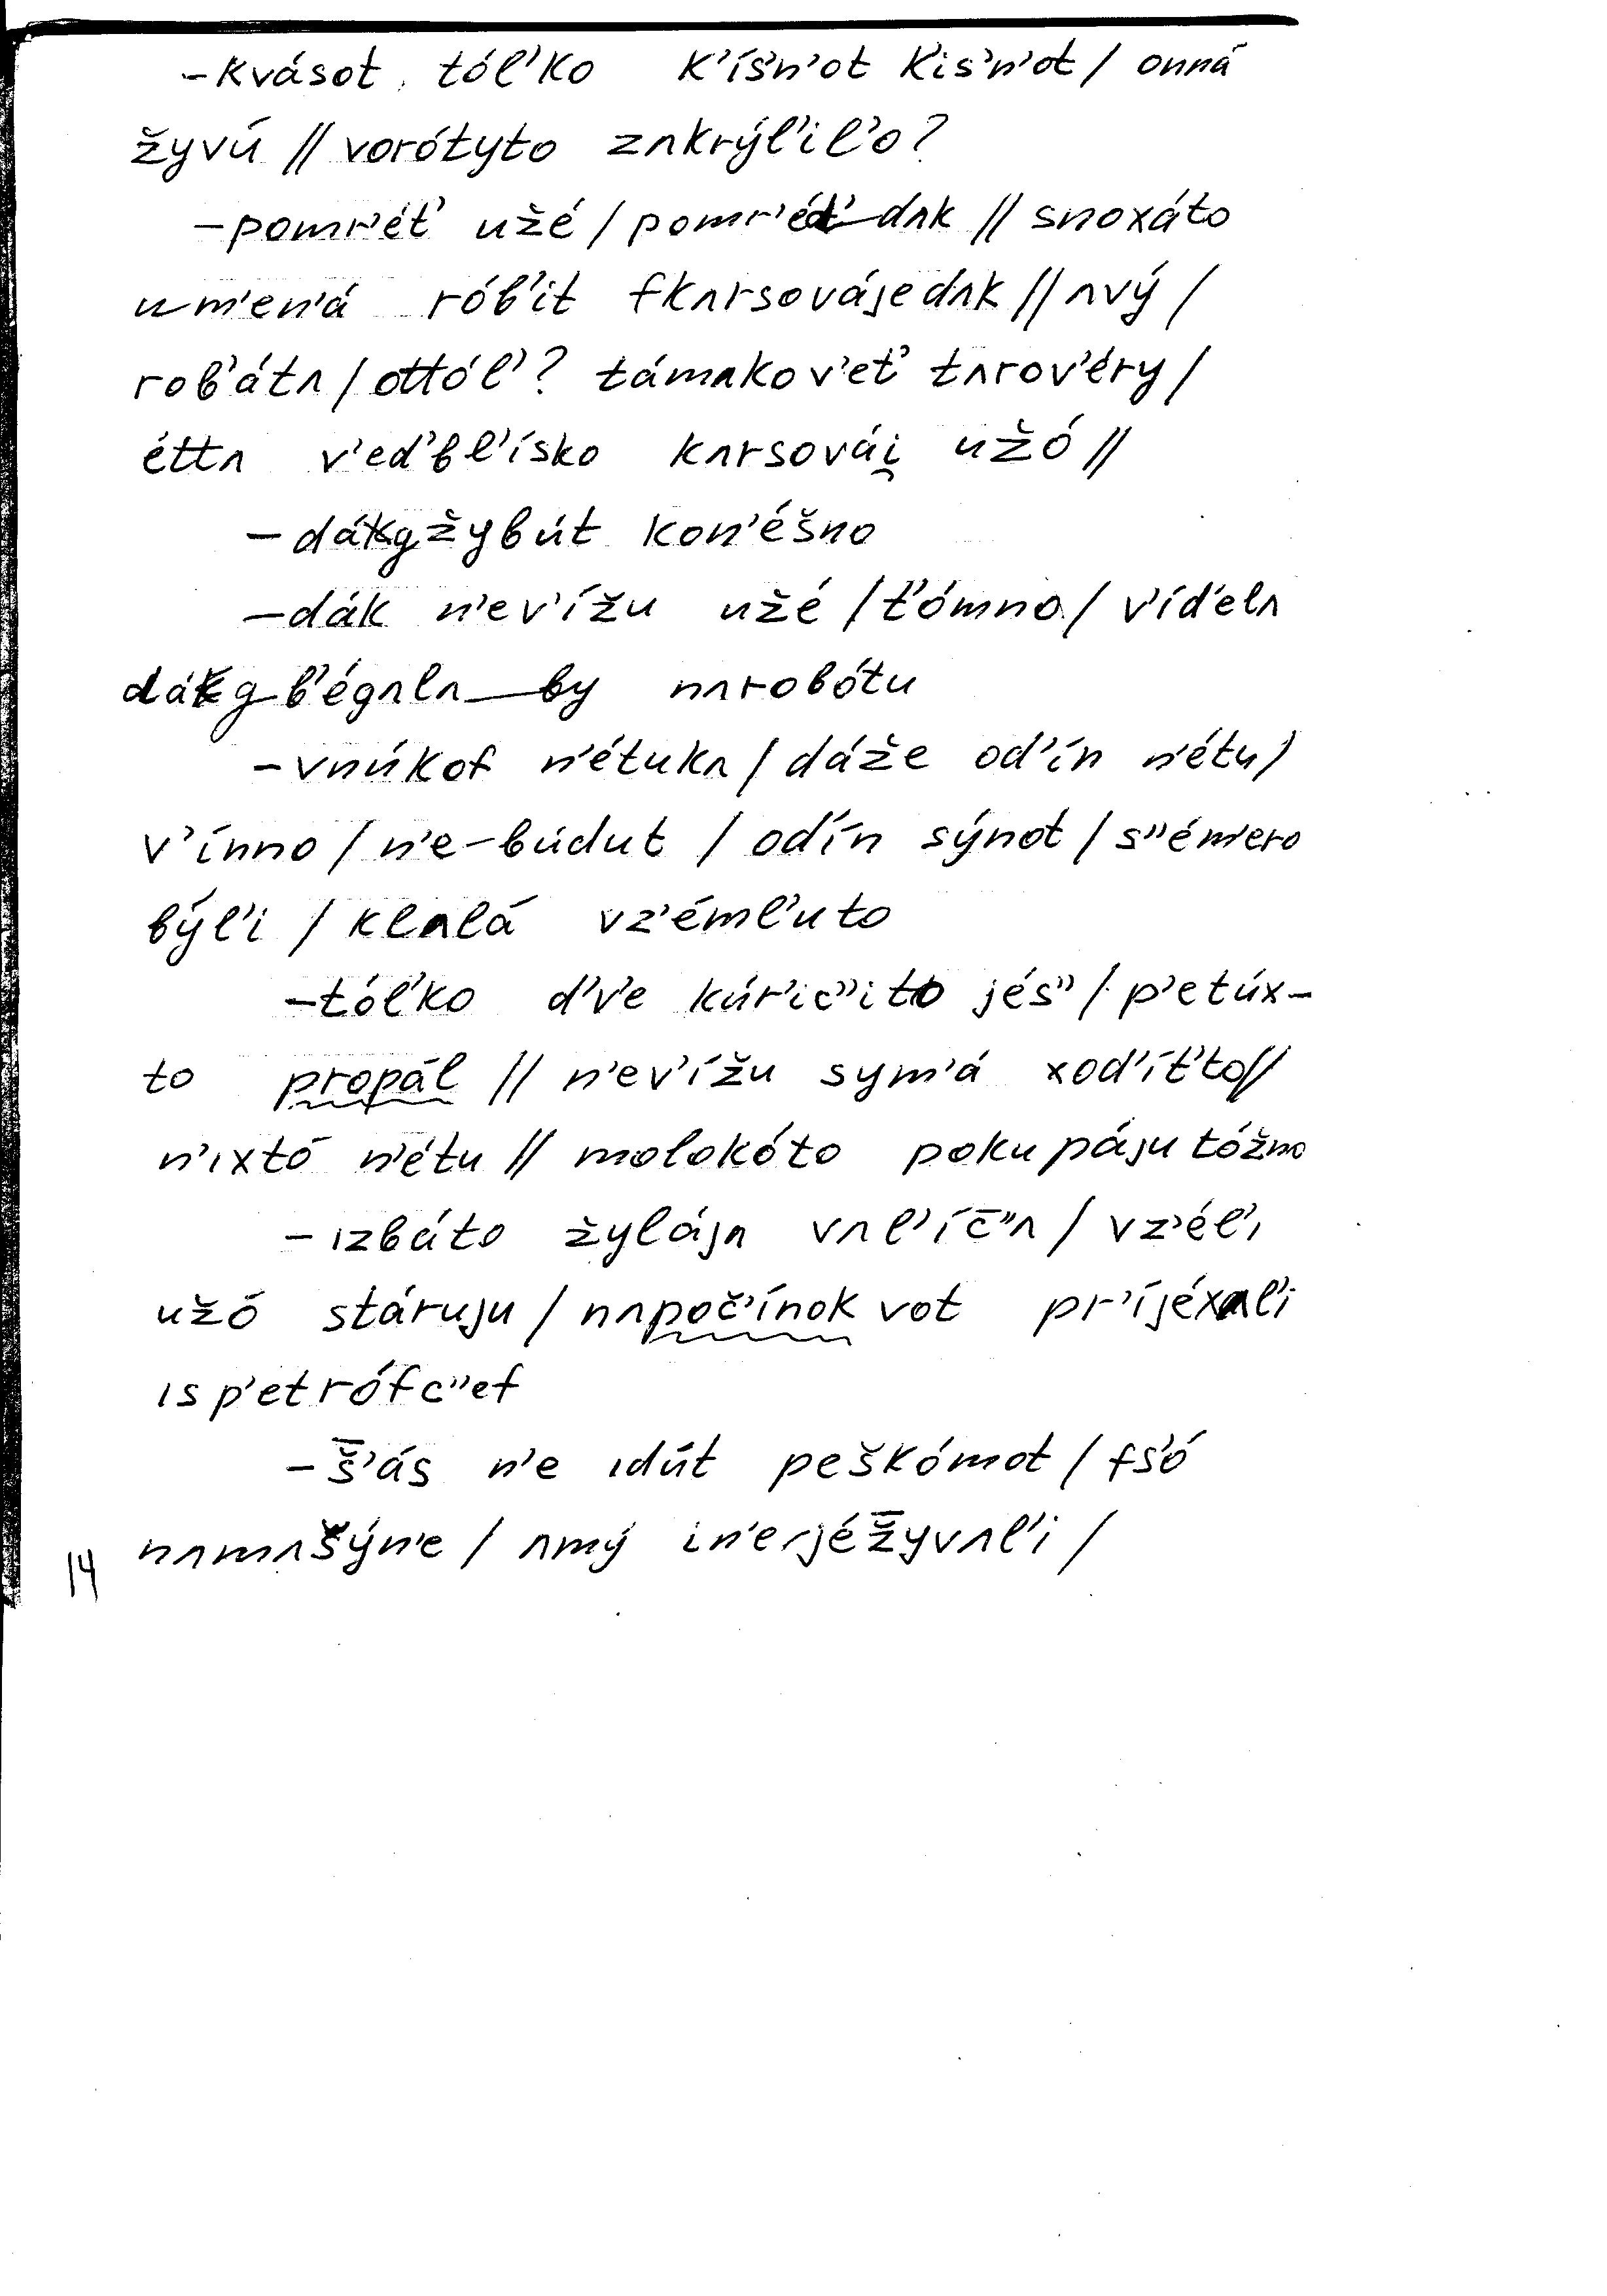 – kvásot tól’ko k’ís’n’ot k’is’n’ot / onná
žyvú // vorótyto zʌkrýl’il’o?
– pomr’ét’ užé / pomr’éd’‿dʌk // snoxáto
um’en’á rób’it fkʌrsovájedʌk // ʌvý /
rob’átʌ / ottól’? támʌko v’et’ tʌrov’éry /
éttʌ v’ed’bl’ísko kʌrsovái̯ užó //
– žybút kon’éšno
– dák n’ev’ížu užé / t’ómno / v’íd’elʌ
b’égʌlʌ‿by nʌrobótu
– vnúkof n’étukʌ / dáže od’ín n’étu /
v’ínno / n’e‿búdut / od’ín sýnot / s”ém’ero
býl’i / klʌlá vz’éml’uto
– tól’ko d’v’e kúr’ic”ito jés” / p’etúx-
to propál // n’ev’ížu sym’á xod’ít’to //
n’ixtó n’étu // molokóto pokupáju tóžno
– izbáto žylájʌ vʌl’íc̄”ʌ / vz’él’i
užó stáruju / nʌpoč’ínok vot pr’ijéxʌl’i
isp’etrófc”ef
– š̄’ás n’e idút peškómot / fs’ó
nʌmʌšýn’e / ʌmý in’erjéž̄yvʌl’i /
14